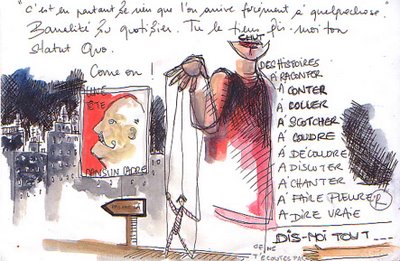 "C'est en partant de rien que l'on arrive forcément à quelquechose"
Banalité du quotidien. Tu le tiens
ton
statut Quo.
Come on !
CHUT
UNE
TÊTE
DANS UN CADRE
DES HISTOIRES
A RACONTER
A CONTER
A COLLER
A SCOTCHER
A COUDRE
A DÉCOUDRE
A DISCUTER
A CHANTER
A FAIRE PLEURER
A DIRE VRAIE
DIS-MOI TOUT ---
T'ÉCOUTES PAS